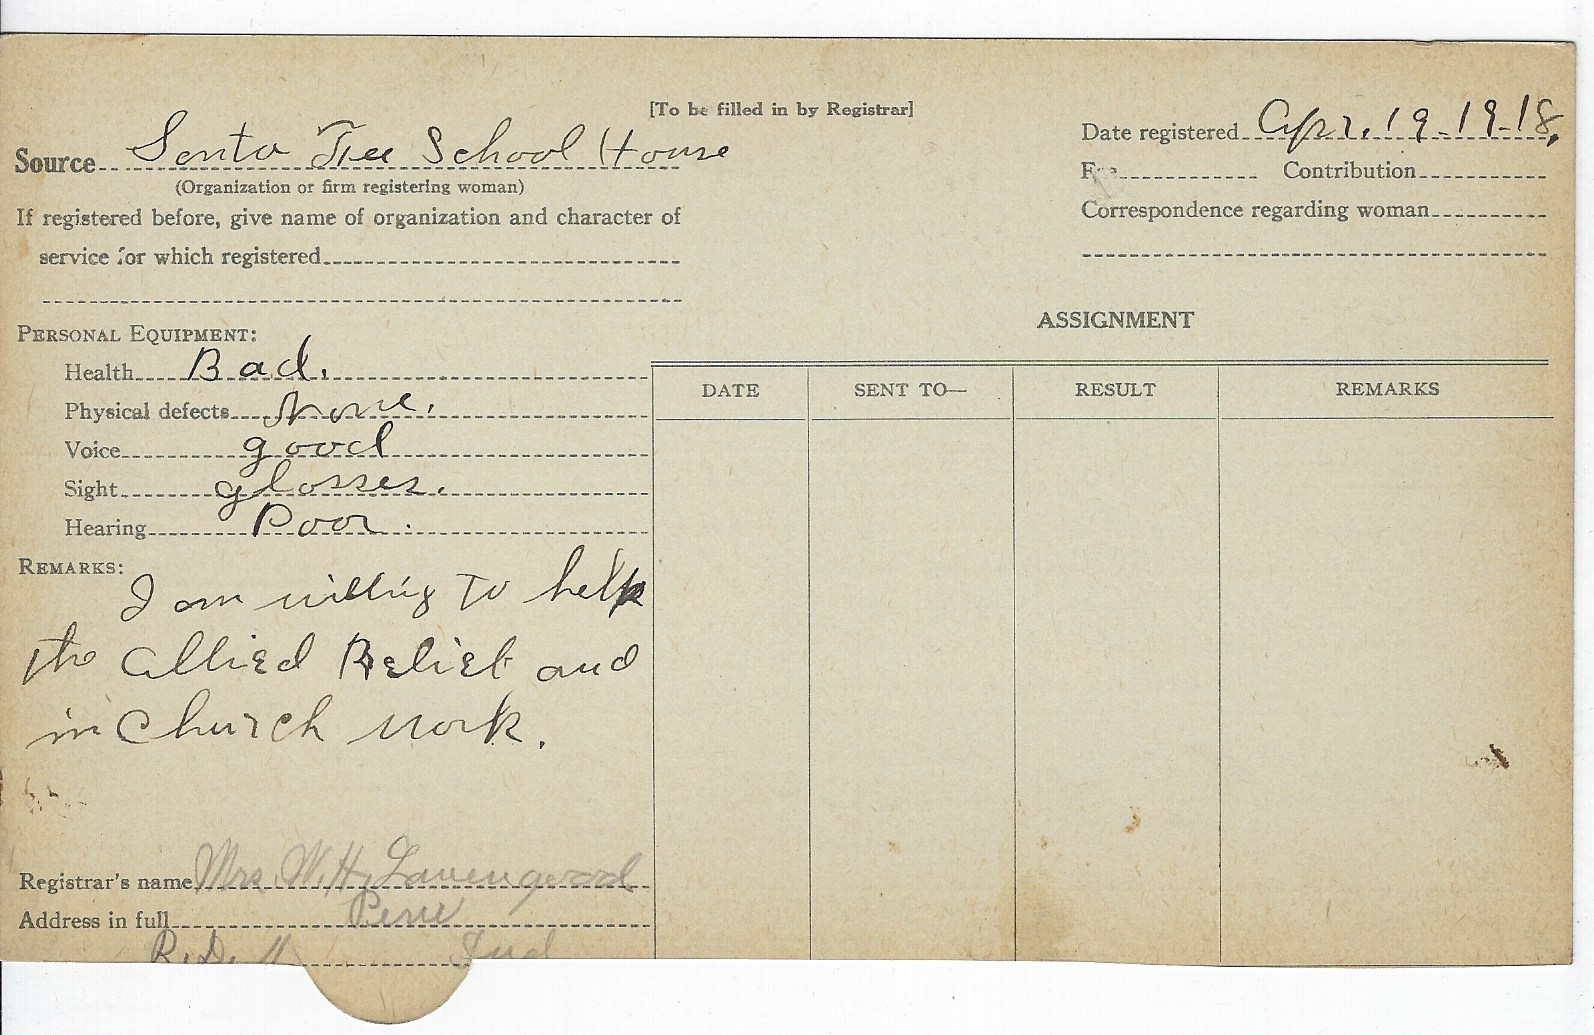 [To be filled in by Registrar]
Source Santa Fee School House
(Organization or firm registering woman)
If registered before, give name of organization and character of
service for which registered
Date registered Apr. 19-19-18.
Fee Contribution
Correspondence regarding woman
PERSONAL EQUIPMENT:
Health Bad.
Physical defects None.
Voice good
Sight glasses.
Hearing Poor.
REMARKS:
I am willing to help
the Allied Relief and
in Church work.
Registrar's name Mrs. W. H. Lavengood
Address in full Peru
R. D. 11 Ind
ASSIGNMENT
DATE SENT TO— RESULT REMARKS